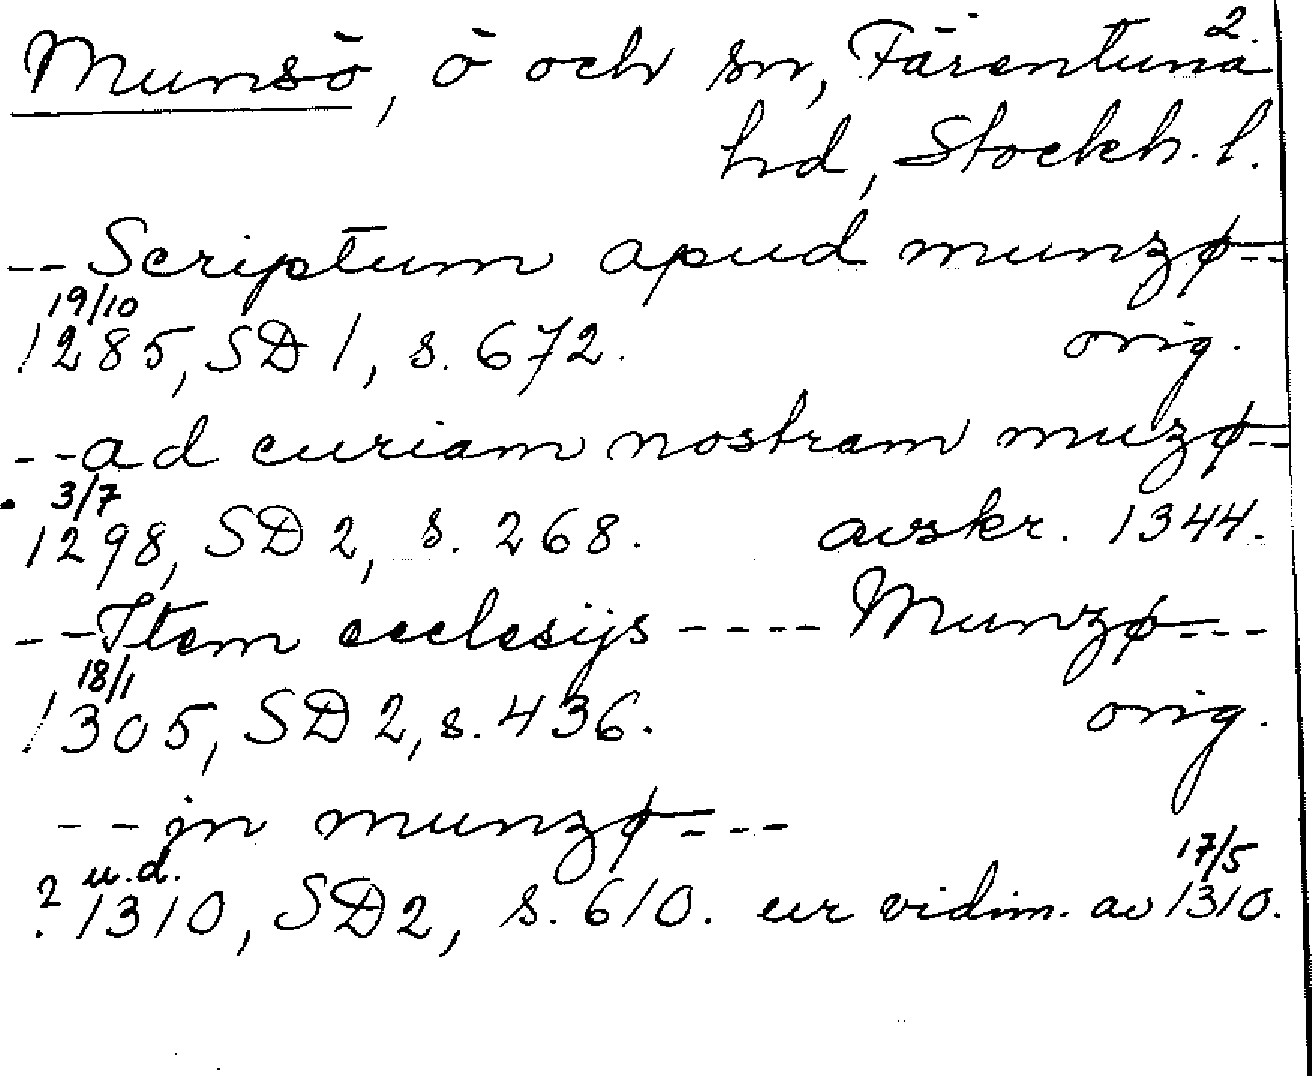 2.
Munsö, ö och sn, Färentuna
hd, Stockh. l.
-- Scriptum apud munzø --
19/10
1285, SD 1, s. 672. orig.
-- ad curiam nostram muzø --
3/7
1298, SD 2, s. 268. avskr. 1344.
-- Item ecclesijs ---- Munzø ---
18/1
1305, SD 2, s. 436. orig.
-- in munzø ---
u.d. 17/5
? 1310, SD 2, s. 610. ur vidim. av 1310.